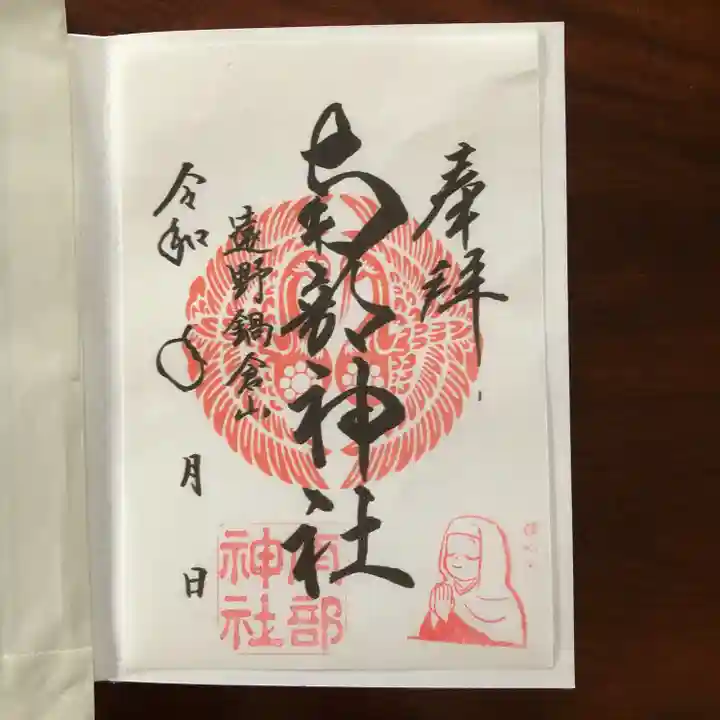 奉拝
南部神社
遠野鍋倉山
令和 年 月 日
南部
神社